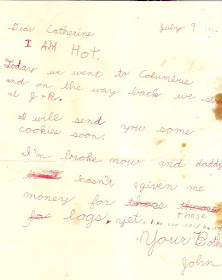 Dear Catherine July 9
I AM Hot.
Today we went to Columbus
and on the way back we
at J+R.
I will send you some
cookies soon.
I'm broke now and daddy
hasn't given me
money for those
logs, yet.
Your Bro
John